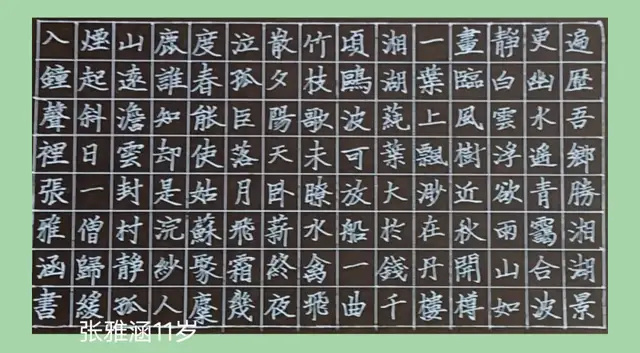 遍歷吾鄉勝湘湖景
更幽水遙青靄合波
靜白雲浮欲雨山如
畫臨風樹近秋開樽
一葉上飄渺在丹樓
湘湖蒓葉大於錢千
頃鷗波可放船一曲
竹枝歌未瞭水禽飛
散夕陽天卧薪終夜
泣孤臣落月飛霜幾
度春能使姑蘇聚麋
鹿誰知却是浣紗人
山遠澹雲封村靜孤
煙起斜日一僧歸緩
入鐘聲裡張雅涵書
张雅涵11岁